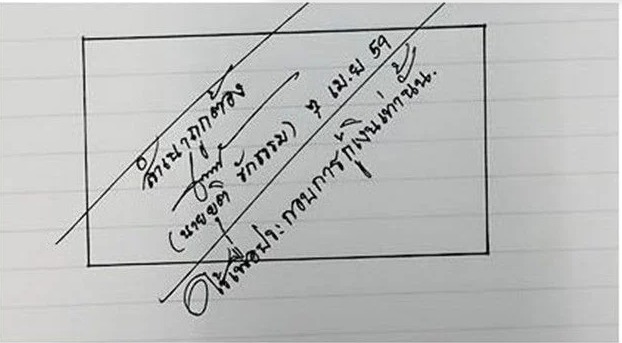 สำเนาถูกต้อง
(นายยุติ รักธรรม) ๗ เม.ย 59
ใช้เพื่อประกอบการกู้เงินเท่านั้น.